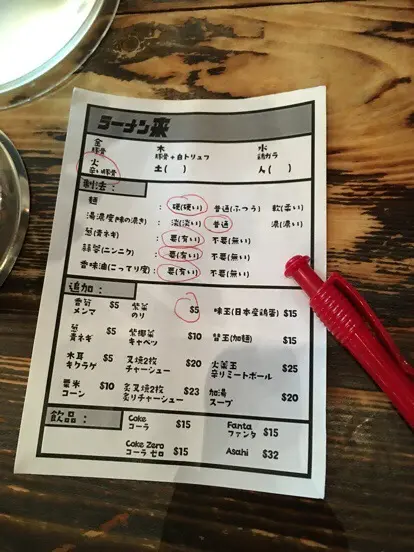 ラーメン来
金 木 水
豚骨 豚骨+白トリュフ 鶏ガラ
火 土( ) ん( )
辛い豚骨
制法:
麺 : 硬(硬い) 普通(ふつう) 軟(柔い)
湯濃度(味の濃さ) : 淡(淡い) 普通 濃(濃い)
葱(青ネギ) : 要(有い) 不要(無い)
蒜蓉(ニンニク) : 要(有い) 不要(無い)
香味油(こってり度) : 要(有い) 不要(無い)
追加:
メンマ $5 紫菜 のり $5 味玉(日本産鶏蛋) $15
葱 青ネギ $5 椰菜 キャベツ $10 替玉(加麺) $15
木耳 キクラゲ $5 叉焼2枚 チャーシュー $20 火薬玉 辛リミートボール $25
粟米 コーン $10 炙叉焼2枚 炙りチャーシュー $23 加湯 スープ $20
飲品:
Coke コーラ $15 Fanta ファンタ $15
Coke Zero コーラ ゼロ $15 Asahi $32